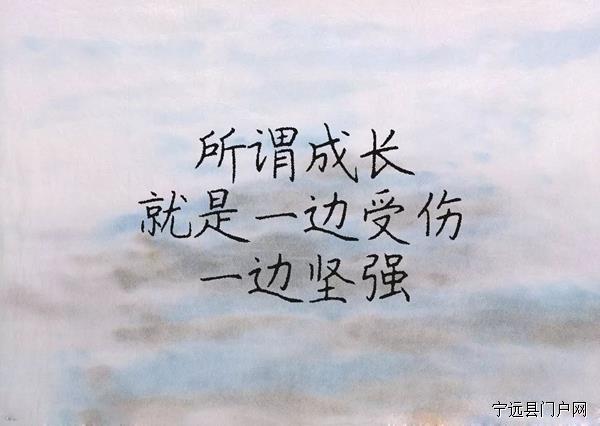 所谓成长
就是一边受伤
一边坚强
宁远县门户网